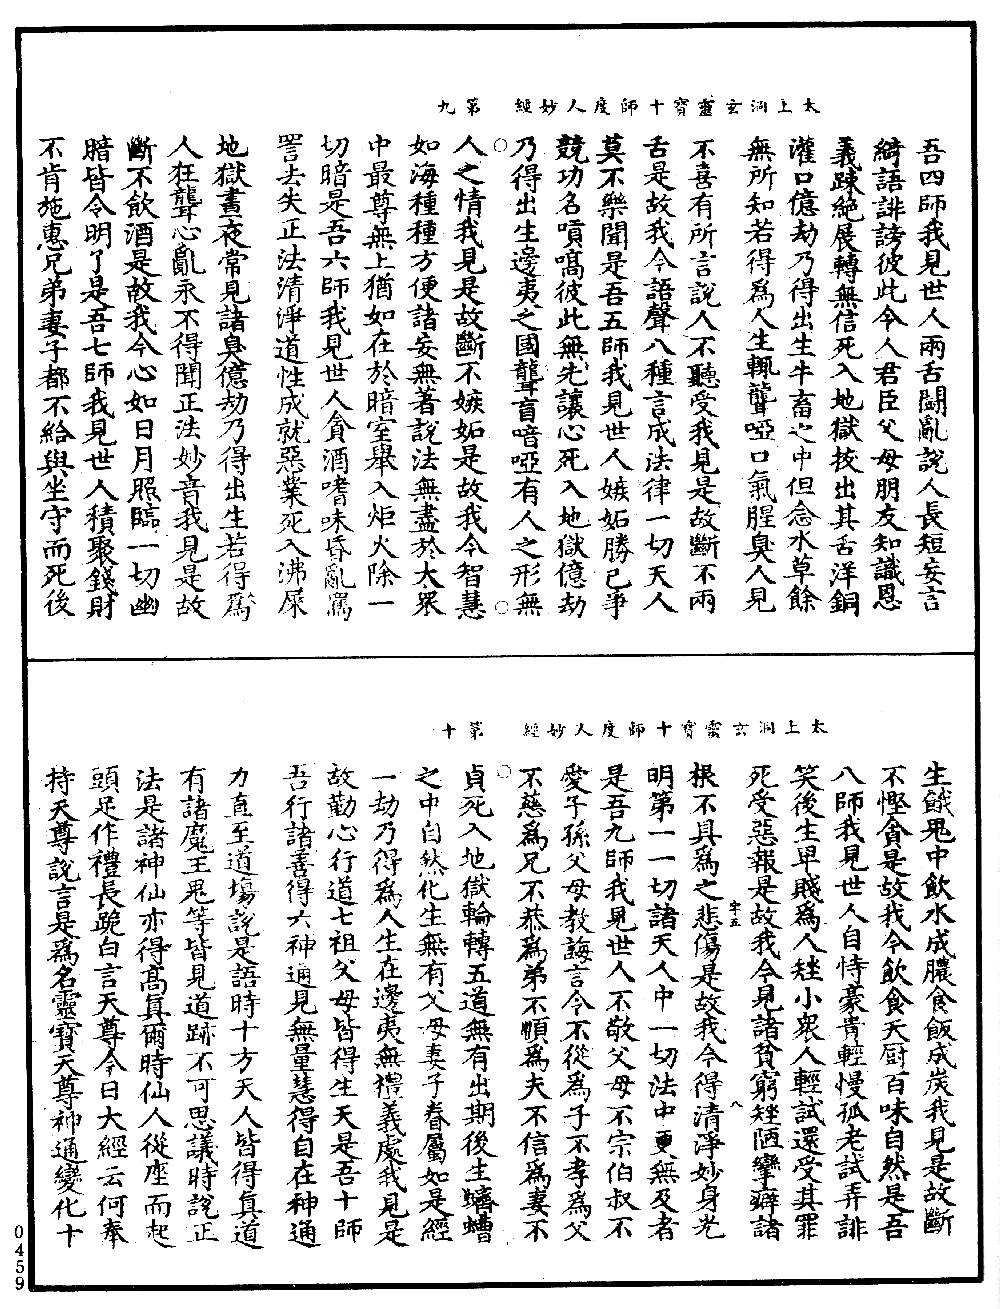 太上洞玄靈寶十師度人妙經　第九
吾四師我見世人兩舌鬪亂說人長短妄言
綺語誹謗彼此令人君臣父母朋友知識恩
義疎絕展轉無信死入地獄拔出其舌洋銅
灌口億劫乃得出生牛畜之中但念水草餘
無所知若得爲人生輒聾啞口氣腥臭人見
不喜有所言說人不聽受我見是故斷不兩
舌是故我今語聲八種言成法律一切天人
莫不樂聞是吾五師我見世人嫉妬勝己爭
競功名嗔嗃彼此無先讓心死入地獄億劫
乃得出生邊夷之國聾盲喑啞有人之形無
人之情我見是故斷不嫉妬是故我今智慧
如海種種方便諸妄無著說法無盡於大眾
中最尊無上猶如在於暗室舉入炬火除一
切暗是吾六師我見世人貪酒嗜味昏亂罵
詈去失正法清淨道性成就惡業死入沸屎
地獄晝夜常見諸臭億劫乃得出生若得爲
人狂聾心亂永不得聞正法妙音我見是故
斷不飲酒是故我今心如日月照臨一切幽
暗皆令明了是吾七師我見世人積聚錢財
不肯施惠兄弟妻子都不給與坐守而死後
太上洞玄靈寶十師度人妙經　第十
生餓鬼中飲水成膿食飯成炭我見是故斷
不慳貪是故我今飲食天厨百味自然是吾
八師我見世人自恃豪貴輕慢孤老試弄誹
笑後生卑賤爲人矬小衆人輕試還受其罪
死受惡報是故我今見諸貧窮矬陋攣癖諸
根不具爲之悲傷是故我今得清淨妙身光
字五　八
明第一一切諸天人中一切法中更無及者
是吾九師我見世人不敬父母不宗伯叔不
愛子孫父母教誨言令不從爲子不孝爲父
不慈爲兄不恭爲弟不順爲夫不信爲妻不
貞死入地獄輪轉五道無有出期後生蠐螬
之中自然化生無有父母妻子眷屬如是經
一劫乃得爲人生在邊夷無禮義處我見是
故勤心行道七祖父母皆得生天是吾十師
吾行諸善得六神通見無量慧得自在神通
力直至道場說是語時十方天人皆得真道
有諸魔王鬼等皆見道跡不可思議時說正
法是諸神仙亦得髙真爾時仙人從座而起
頭足作禮長跪白言天尊今日大經云何奉
持天尊說言是爲名靈寶天尊神通變化十
0459